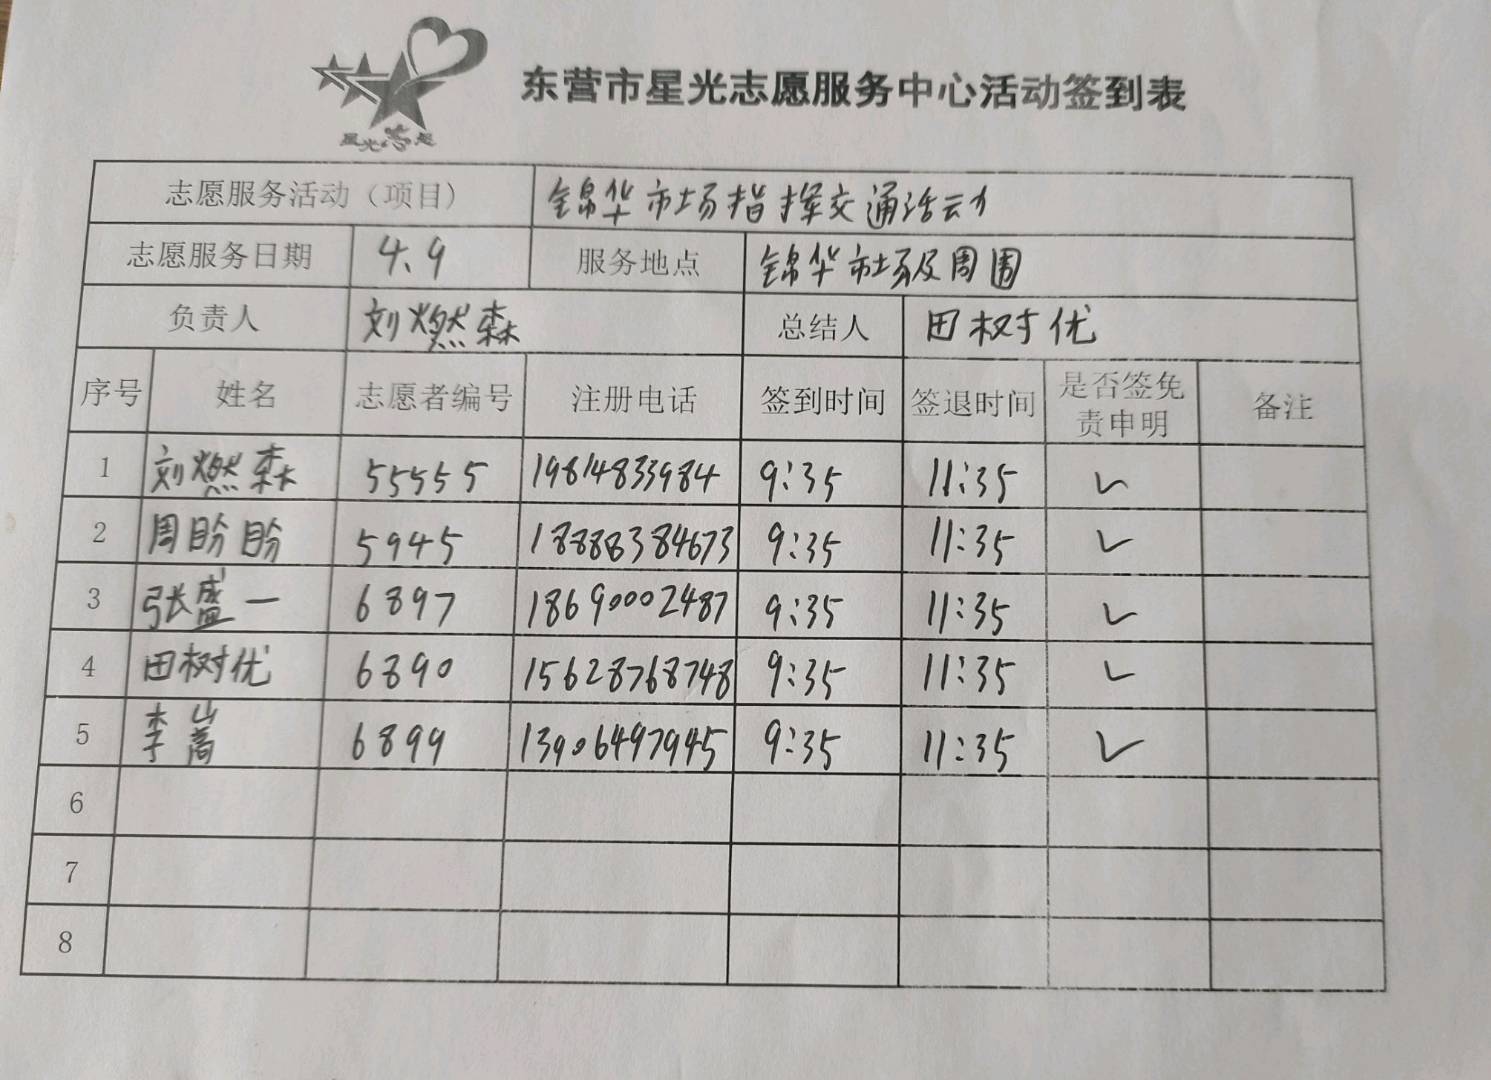 星光志愿
东营市星光志愿服务中心活动签到表
志愿服务活动（项目） 锦华市场指挥交通活动
志愿服务日期 4.9 服务地点 锦华市场及周围
负责人 刘燃森 总结人 田树优
序号 姓名 志愿者编号 注册电话 签到时间 签退时间 是否签免责申明 备注
1 刘燃森 55555 19814833984 9:35 11:35 ✓
2 周盼盼 5945 18888384673 9:35 11:35 ✓
3 张盛一 6897 18690002487 9:35 11:35 ✓
4 田树优 6890 15628768748 9:35 11:35 ✓
5 李嵩 6899 13906497945 9:35 11:35 ✓
6
7
8